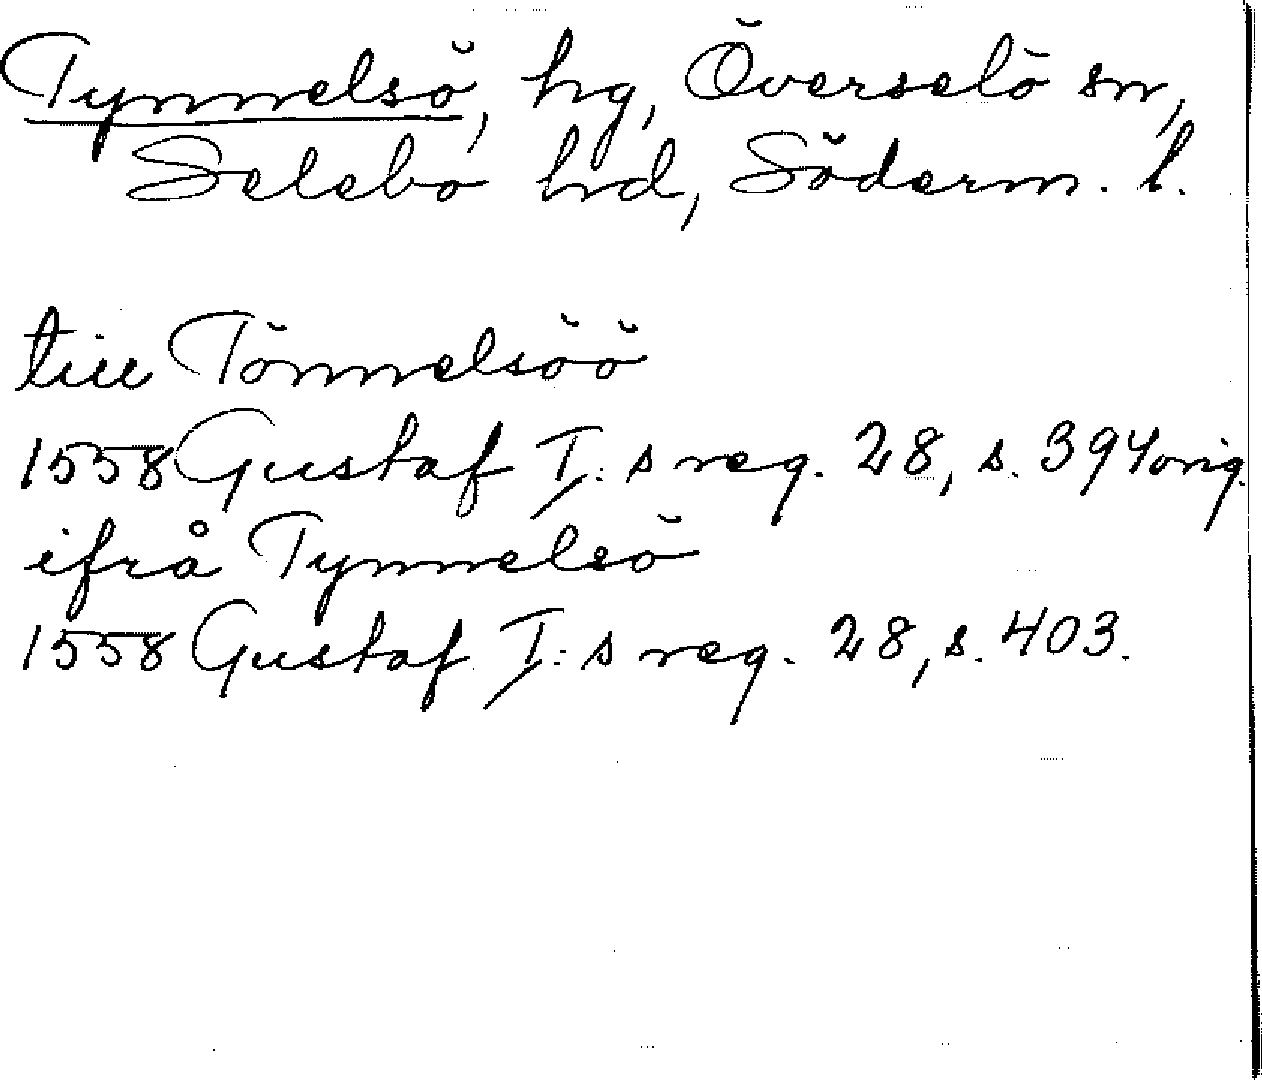 Tynnelsö, hg, Överselö sn,
Selebo hd, Söderm. l.
till Tönnelsöö
1558 Gustaf I:s reg. 28, s. 394 orig.
ifrå Tynnelsö
1558 Gustaf I:s reg. 28, s. 403.